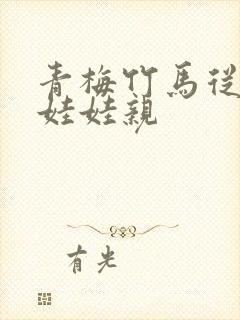 青梅竹馬從
娃娃親
有光